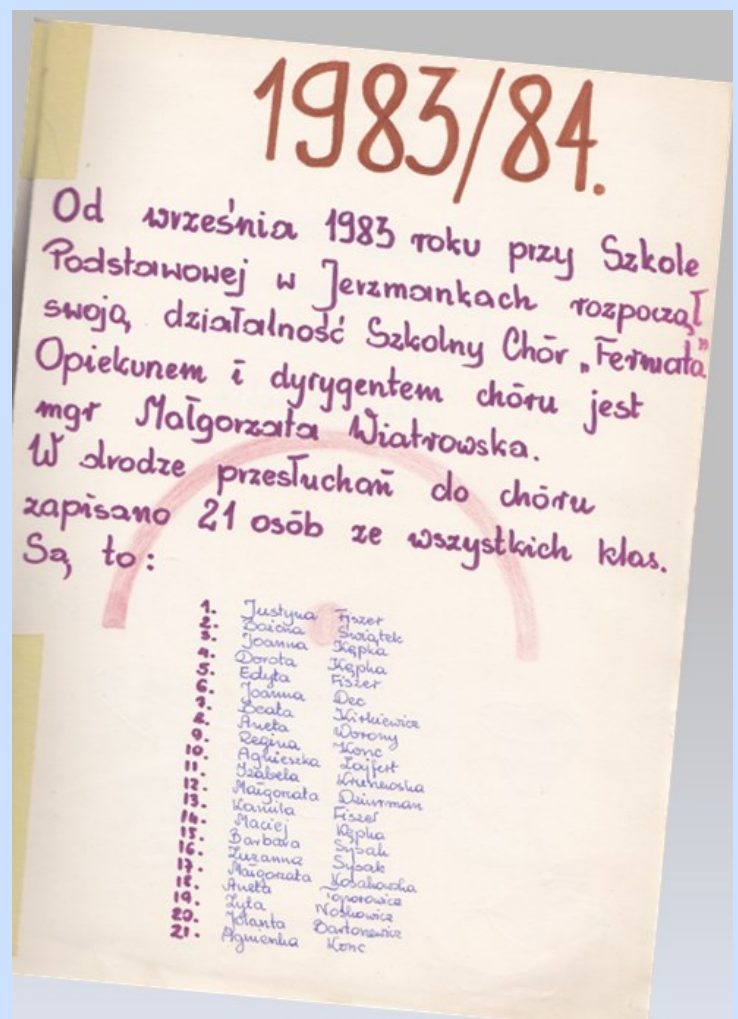 1983/84.
Od września 1983 roku przy Szkole
Podstawowej w Jerzmankach rozpoczął
swoją działalność Szkolny Chór „Fermata”
Opiekunem i dyrygentem chóru jest
mgr Małgorzata Wiatrowska.
W drodze przesłuchań do chóru
zapisano 21 osób ze wszystkich klas.
Są to:
1. Justyna Fiszer
2. Bożena Świątek
3. Joanna Kępka
4. Dorota Kępka
5. Edyta Fiszer
6. Joanna Dec
7. Beata Kirkiewicz
8. Aneta Worony
9. Regina Konc
10. Agnieszka Lajfert
11. Izabela
12. Małgorzata
13. Kamila Fiszer
14. Maciej Kępka
15. Barbara Sysak
16. Zuzanna Sysak
17. Małgorzata Kosakowska
18. Aneta
19. Zyta Noskowicz
20. Jolanta
21. Agnieszka Konc